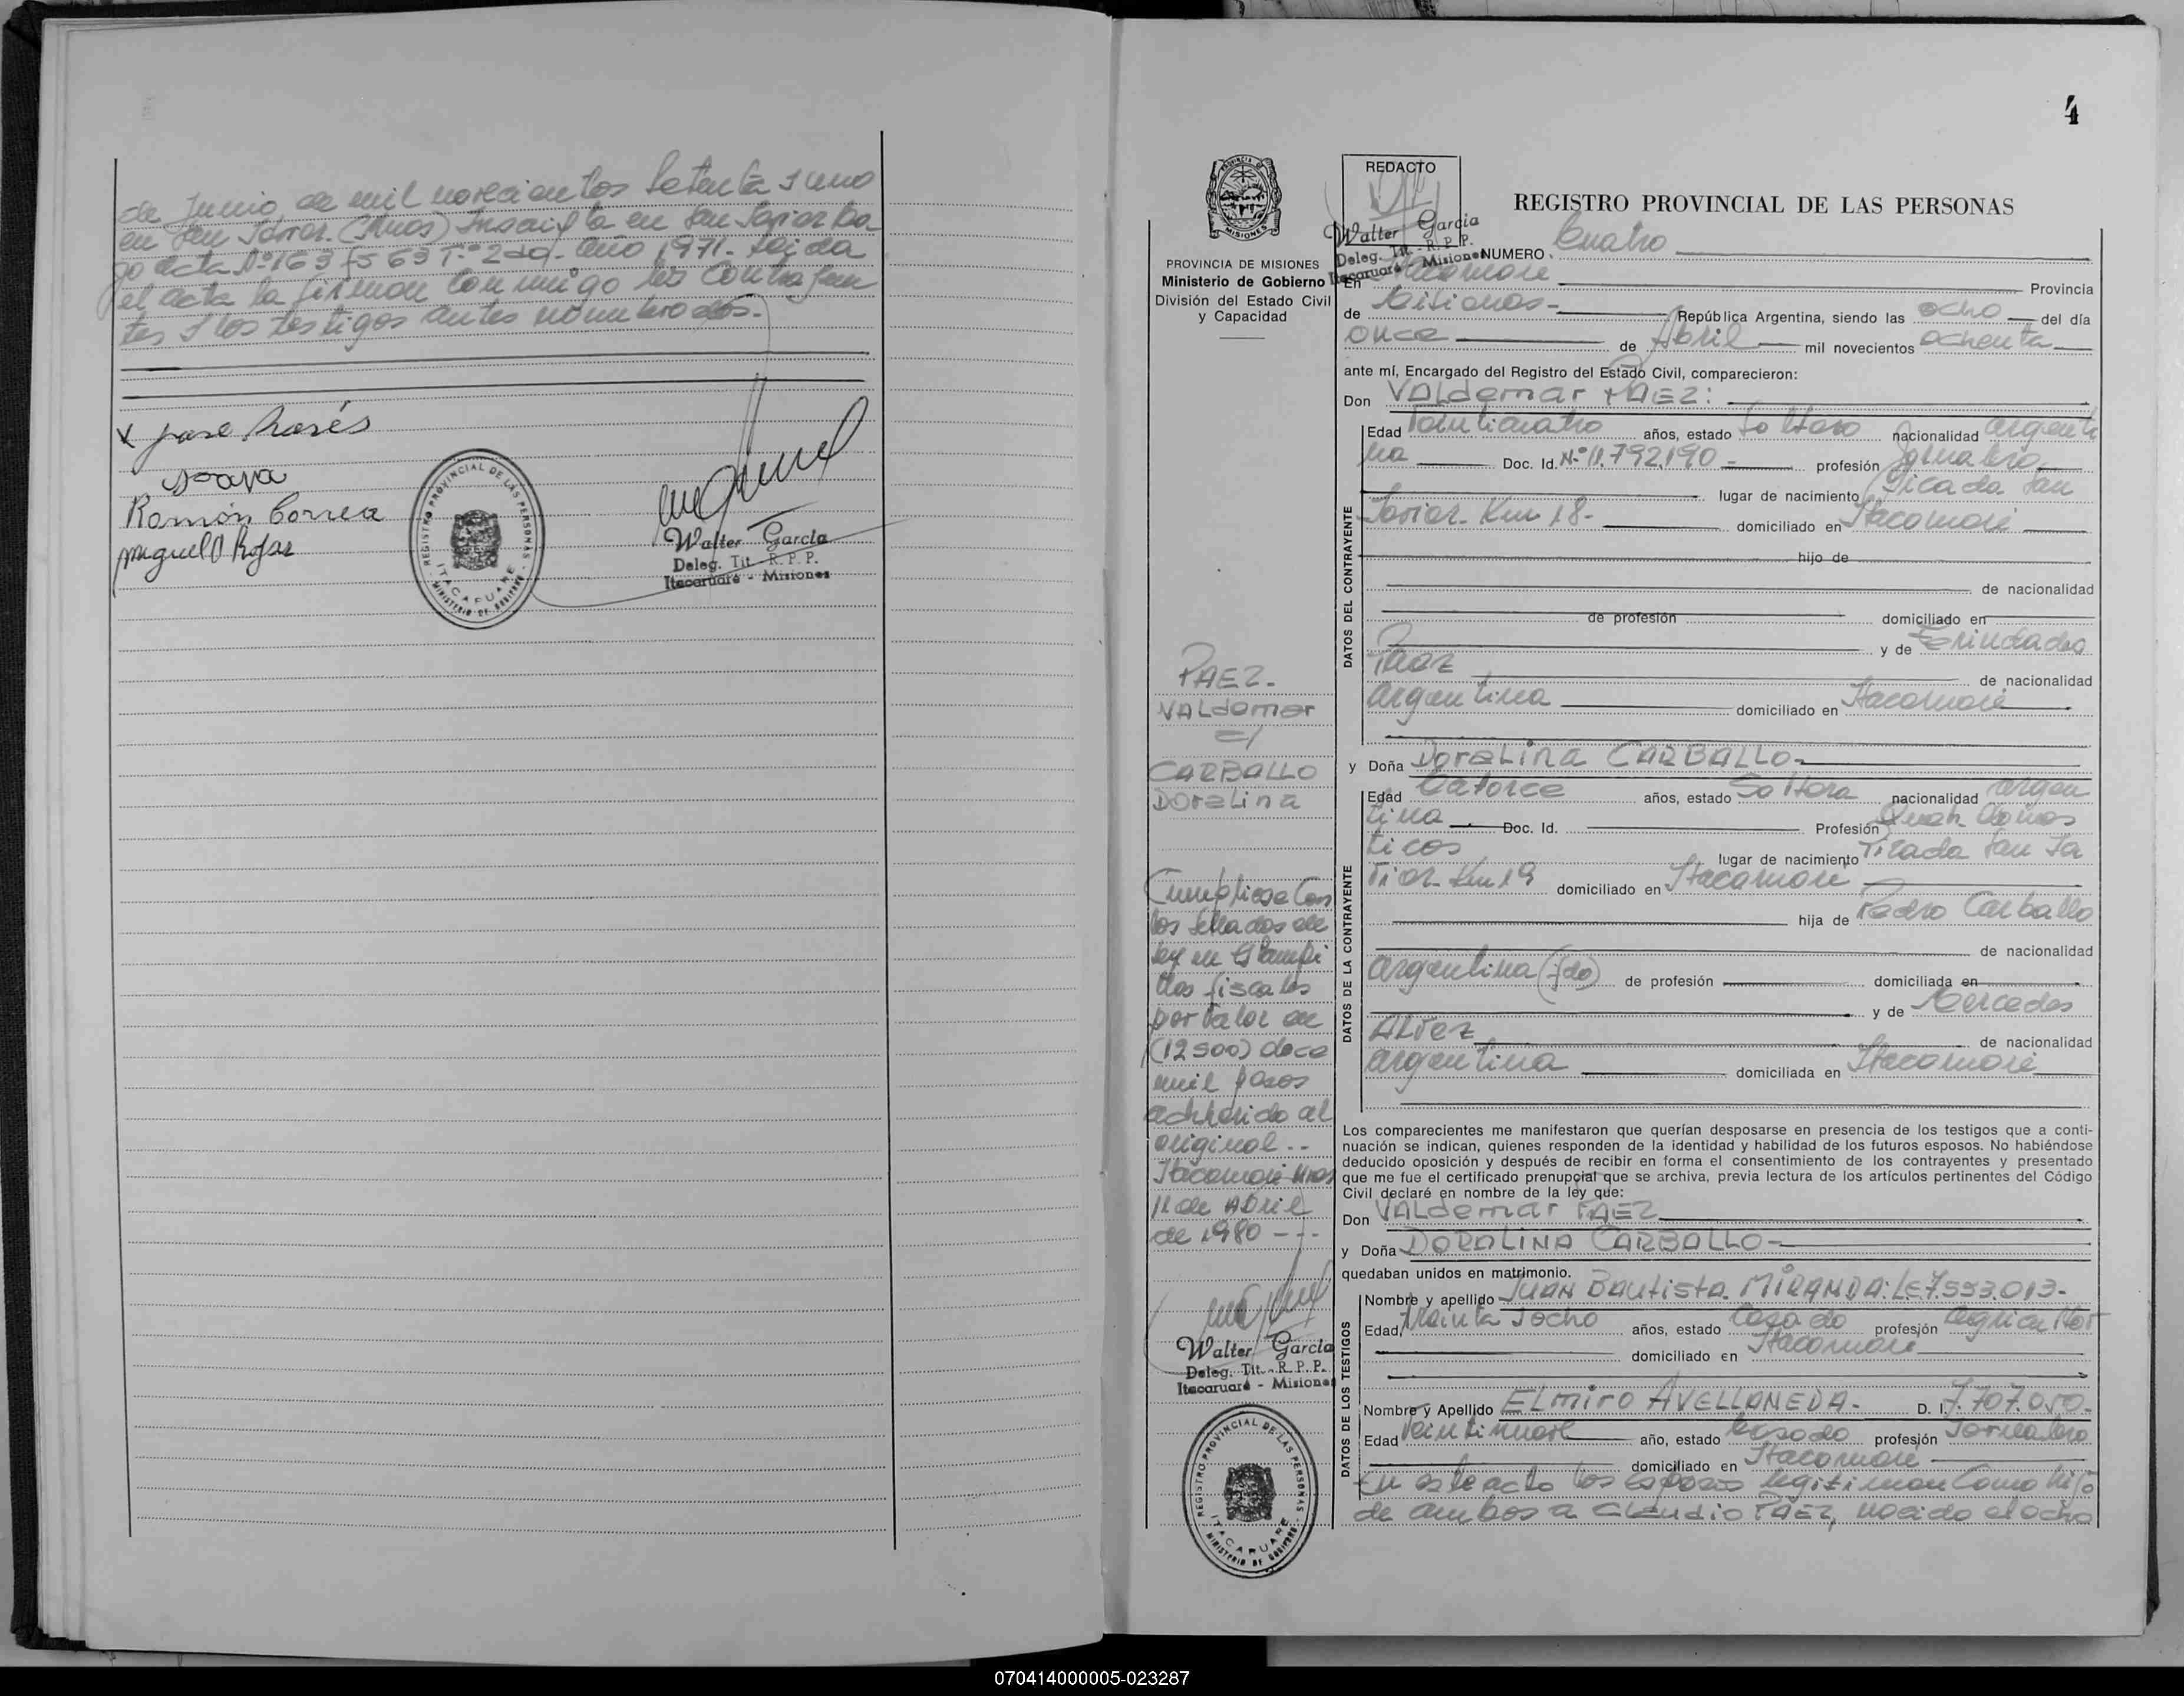 de Junio, de mil novecientos Setenta y uno
en San Javier. (Mnes) Inscripta en San Javier ba
jo acta Nº 163 fs 63 Tº 2do. año 1971. Leida
el acta la firman conmigo los contrayen
tes y los testigos antes nombrados.-
x jose
Ramón Correa
miguel Rojas
REGISTRO PROVINCIAL DE LAS PERSONAS
ITACARUARE
MINISTERIO DE GOBIERNO
Walter García
Deleg. Tit. R. P. P.
Itacaruaré - Misiones
4
PROVINCIA DE
MISIONES
PROVINCIA DE MISIONES
Ministerio de Gobierno
División del Estado Civil
y Capacidad
REDACTO
Walter García
Deleg. Tit. R. P. P.
Itacaruaré Misiones
REGISTRO PROVINCIAL DE LAS PERSONAS
NUMERO Cuatro
En Itacaruaré Provincia
de Misiones- República Argentina, siendo las ocho del día
once de Abril mil novecientos ochenta
ante mí, Encargado del Registro del Estado Civil, comparecieron:
Don VALdemar PAEZ:
DATOS DEL CONTRAYENTE
Edad Veinticuatro años, estado Soltero nacionalidad argenti
na Doc. Id. Nº 11.792.190- profesión Jornalero
lugar de nacimiento Picada San
Javier- Km 18- domiciliado en Itacaruaré
hijo de
de nacionalidad
de profesión domiciliado en
y de
Paez de nacionalidad
argentina domiciliado en Itacaruaré
y Doña DoraLina CARBALLO-
DATOS DE LA CONTRAYENTE
Edad Catorce años, estado Soltera nacionalidad argen
tina Doc. Id. Profesión Queh. Domes
ticos lugar de nacimiento Picada San Ja
vier- Km 19 domiciliado en Itacaruaré
hija de Pedro Carballo
de nacionalidad
argentina (fdo) de profesión domiciliada en
y de Mercedes
ALvez de nacionalidad
argentina domiciliada en Itacaruaré
Los comparecientes me manifestaron que querían desposarse en presencia de los testigos que a conti-
nuación se indican, quienes responden de la identidad y habilidad de los futuros esposos. No habiéndose
deducido oposición y después de recibir en forma el consentimiento de los contrayentes y presentado
que me fue el certificado prenupcial que se archiva, previa lectura de los artículos pertinentes del Código
Civil declaré en nombre de la ley que:
Don VALdemar PAEZ
y Doña DORALINA CARBALLO-
quedaban unidos en matrimonio.
DATOS DE LOS TESTIGOS
Nombre y apellido JUAN BAutista. MIRANDA: L.E 7.553.013-
Edad, treinta y ocho años, estado Casado profesión agricultor
domiciliado en Itacaruaré
Nombre y Apellido ELmiro AVELLANEDA- D. I. 7.707.050-
Edad Veintinueve año, estado Casado profesión Jornalero
domiciliado en Itacaruaré
En este acto los esposos legitiman como hijo
de ambos a CLaudio PAEZ, nacido el ocho
PAEZ-
VALdemar
c/
CARBALLO
DoraLina
Cumpliose Con
los sellados de
ley en Estampi
llas fiscales
por valor de
(12500) doce
mil pesos
adherido al
original --
Itacaruaré Mnes
11 de Abril
de 1980 ---
Walter García
Deleg. Tit. R. P. P.
Itacaruaré - Misiones
REGISTRO PROVINCIAL DE LAS PERSONAS
ITACARUARE
MINISTERIO DE GOBIERNO
070414000005-023287